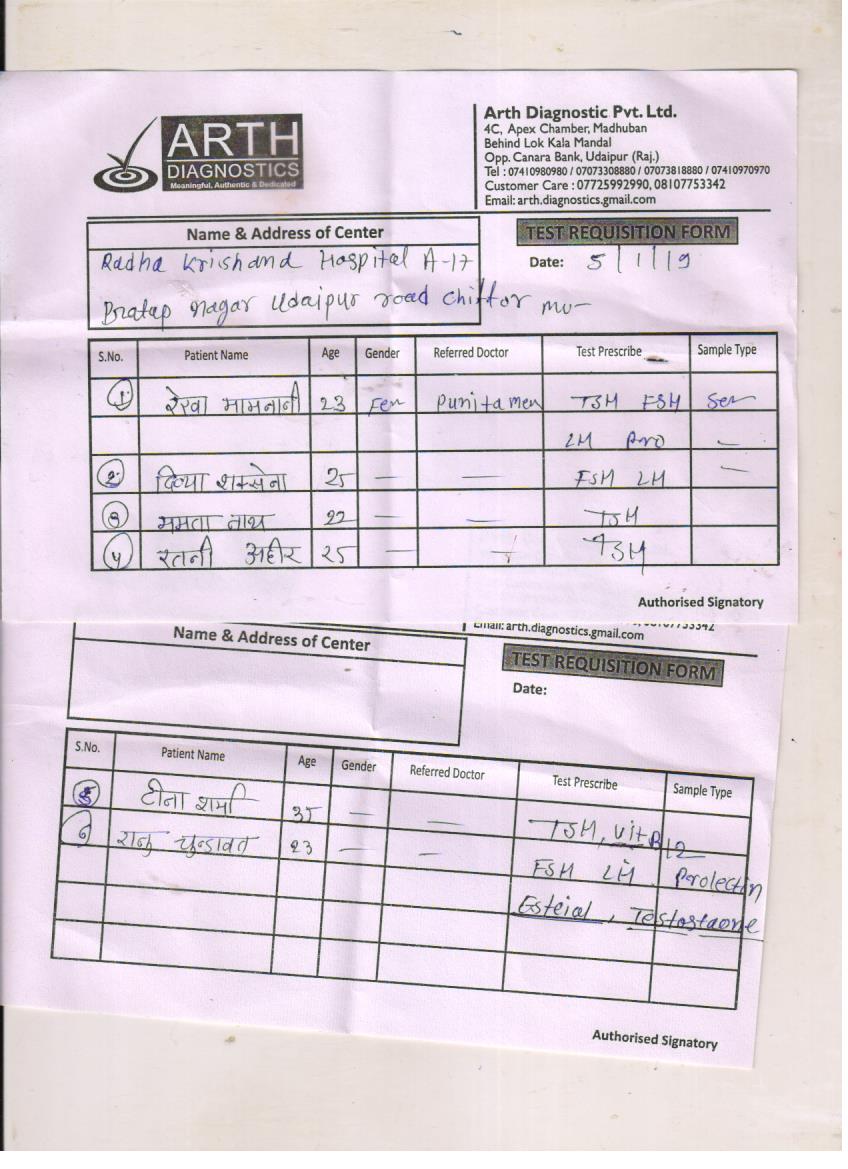 ARTH
DIAGNOSTICS
Meaningful, Authentic & Dedicated
Arth Diagnostic Pvt. Ltd.
4C, Apex Chamber, Madhuban
Behind Lok Kala Mandal
Opp. Canara Bank, Udaipur (Raj.)
Tel : 07410980980 / 07073308880 / 07073818880 / 07410970970
Customer Care : 07725992990, 08107753342
Email: arth.diagnostics.gmail.com
Name & Address of Center
TEST REQUISITION FORM
Radha Krishand Hospital A-17
Date: 5/1/19
Pratap Nagar Udaipur road Chittor
S.No. Patient Name Age Gender Referred Doctor Test Prescribe Sample Type
1 रेखा मामनानी 23 Fem Punitamen TSH FSH Ser
LH Pro —
2 दिव्या शक्सेना 25 — — FSH LH —
3 ममता नाथ 22 — — TSH
४ रतनी अहीर 25 — TSH
Authorised Signatory
Email: arth.diagnostics.gmail.com
Name & Address of Center
TEST REQUISITION FORM
Date:
S.No. Patient Name Age Gender Referred Doctor Test Prescribe Sample Type
5 टीना शर्मा 35 — — TSH, Vit B12
चुन्डावत 23 — — FSH LH Prolectin
Esteial, Testostaone
Authorised Signatory